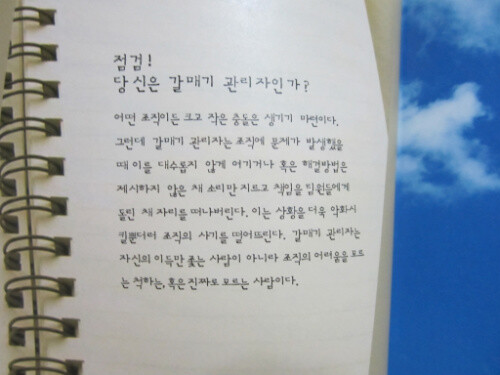 점검!
당신은 갈매기 관리자인가?
어떤 조직이든 크고 작은 충돌은 생기기 마련이다.
그런데 갈매기 관리자는 조직에 문제가 발생했을
때 이를 대수롭지 않게 여기거나 혹은 해결방법은
제시하지 않은 채 소리만 지르고 책임을 팀원들에게
돌린 채 자리를 떠나버린다. 이는 상황을 더욱 악화시
킬뿐더러 조직의 사기를 떨어뜨린다. 갈매기 관리자는
자신의 이득만 좇는 사람이 아니라 조직의 어려움을 모르
는 척하는, 혹은 진짜로 모르는 사람이다.